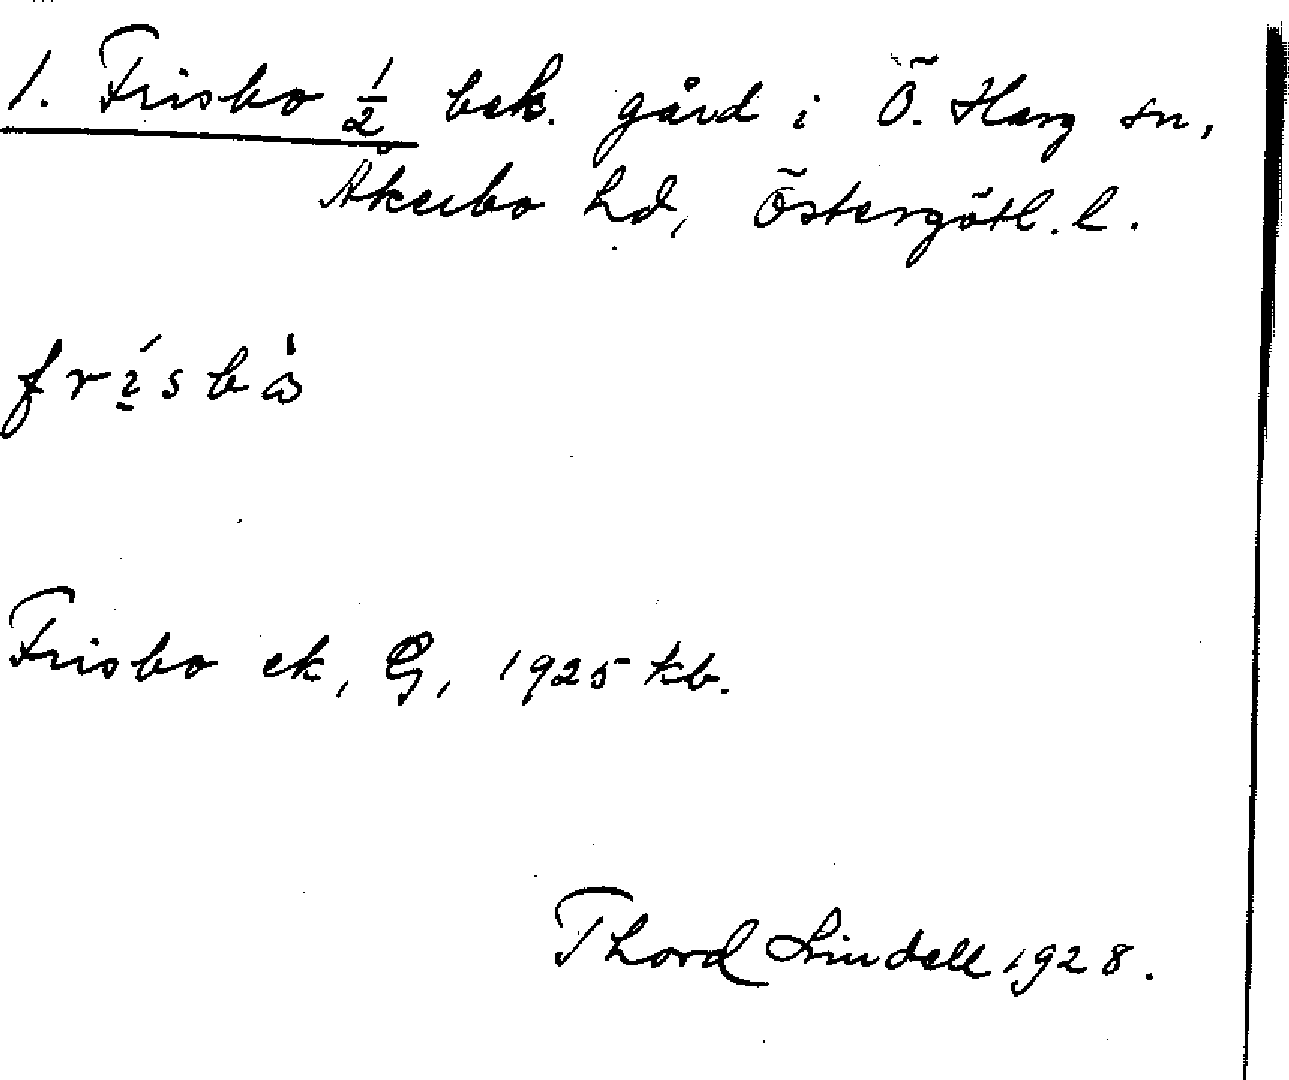 1. Frisbo 1/2 bek. gård i Ö. Harg sn,
Åkerbo hd, Östergötl. l.
Frisbo ek, G, 1925 kb.
Thord Lindell 1928.